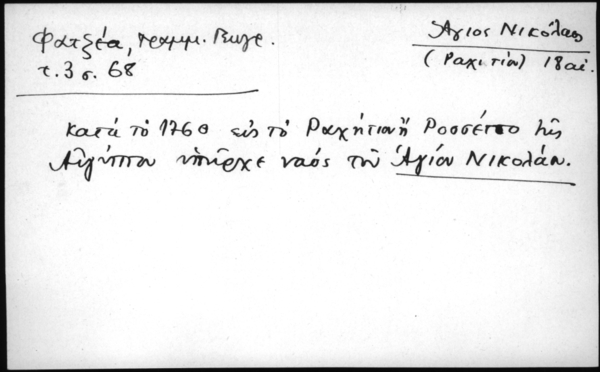 Φατζέα, Γραμμ. Βιογρ.
τ. 3 σ. 68
Ἅγιος Νικόλαος
(Ραχιτίου) 18 αἰ.
κατά τό 1760 εἰς τό Ραχήτιον ἤ Ροσσέττο τῆς
Αἰγύπτου ὑπῆρχε ναός τοῦ Ἁγίου Νικολάου.